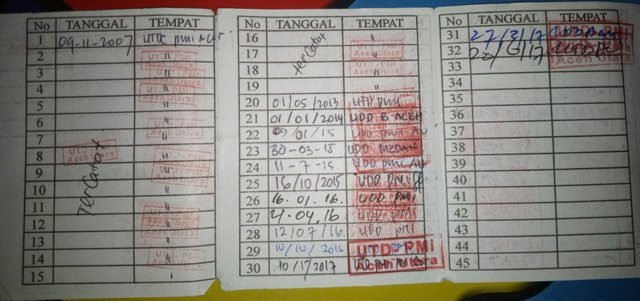 No TANGGAL TEMPAT
1 09-11-2007 UTDC PMI
2 "
3 "
4 "
5 "
6 "
7 "
8 "
9 "
10 "
11 "
12 "
13 "
14 "
15 "
Tercatat
UTD PMI
Aceh Utara
No TANGGAL TEMPAT
16 "
17 "
18 "
19 "
Tercatat
20 01/05/2013 UTD PMI
21 01/01/2014 UDD B. ACEH
22 09/01/15 UDD PMI AU
23 30-03-15 UDD MEDAN
24 11-7-15 UDD PMI AU
25 16/10/2015 UDD PMI
26 16.01.16. UDD PMI
27 2.04.16 UDD PMI
28 12/07/16. UDD PMI
29 10/10/2016 UTD PMI
Aceh Utara
30 10/1/2017 UDD PMI
No TANGGAL TEMPAT
31 27/3/17
32 22/6/17
33
34
35
36
37
38
39
40
41
42
43
44
45